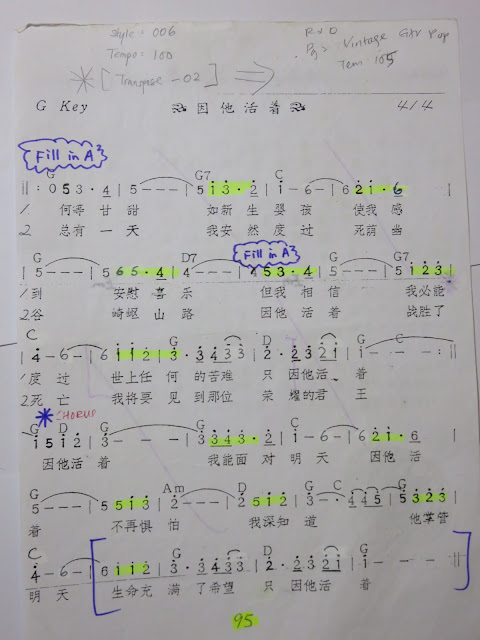 Style: 006
Tempo: 100
R & D
Vintage Gtr Pop
Tem: 105
[Transpose - 02]
G Key 因他活着 4/4
Fill in A
G G7 C
||: 0 5 3 · 4 | 5 - - - | 5 1 3 · 2 | 1 - 6 - | 6 2 1 · 6 |
1 何等甘甜 如新生婴孩 使我感
2 总有一天 我安然度过 死荫幽
Fill in A
G D7 G G7
5 - - - | 5 6 5 · 4 | 4 - - - | 4 5 3 · 4 | 5 - - - | 5 1 2 3 |
1 到 安慰喜乐 但我相信 我必能
2 谷 崎岖山路 因他活着 战胜了
C G D G C
4 - 6 - | 6 1 1 2 | 3 · 3 4 3 3 | 2 · 2 3 2 1 | 1 - - - :||
1 度过 世上任何的苦难 只因他活着
2 死亡 我将要见到那位 荣耀的君王
CHORUS
G D G G C
1 5 1 2 | 3 - - - | 3 3 4 3 · 2 | 1 - 6 - | 6 2 1 · 6 |
因他活着 我能面对明天 因他活
G Am D G C G
5 - - - | 5 5 1 3 | 2 - - - | 2 5 1 2 | 3 - · | 4 4 5 | 5 3 2 3 |
着 不再惧怕 我深知道 他掌管
C G D G
4 - 6 - | 6 1 1 2 | 3 · 3 4 3 3 | 2 · 2 3 2 1 | 1 - - - ||
明天 生命充满了希望 只因他活着
95